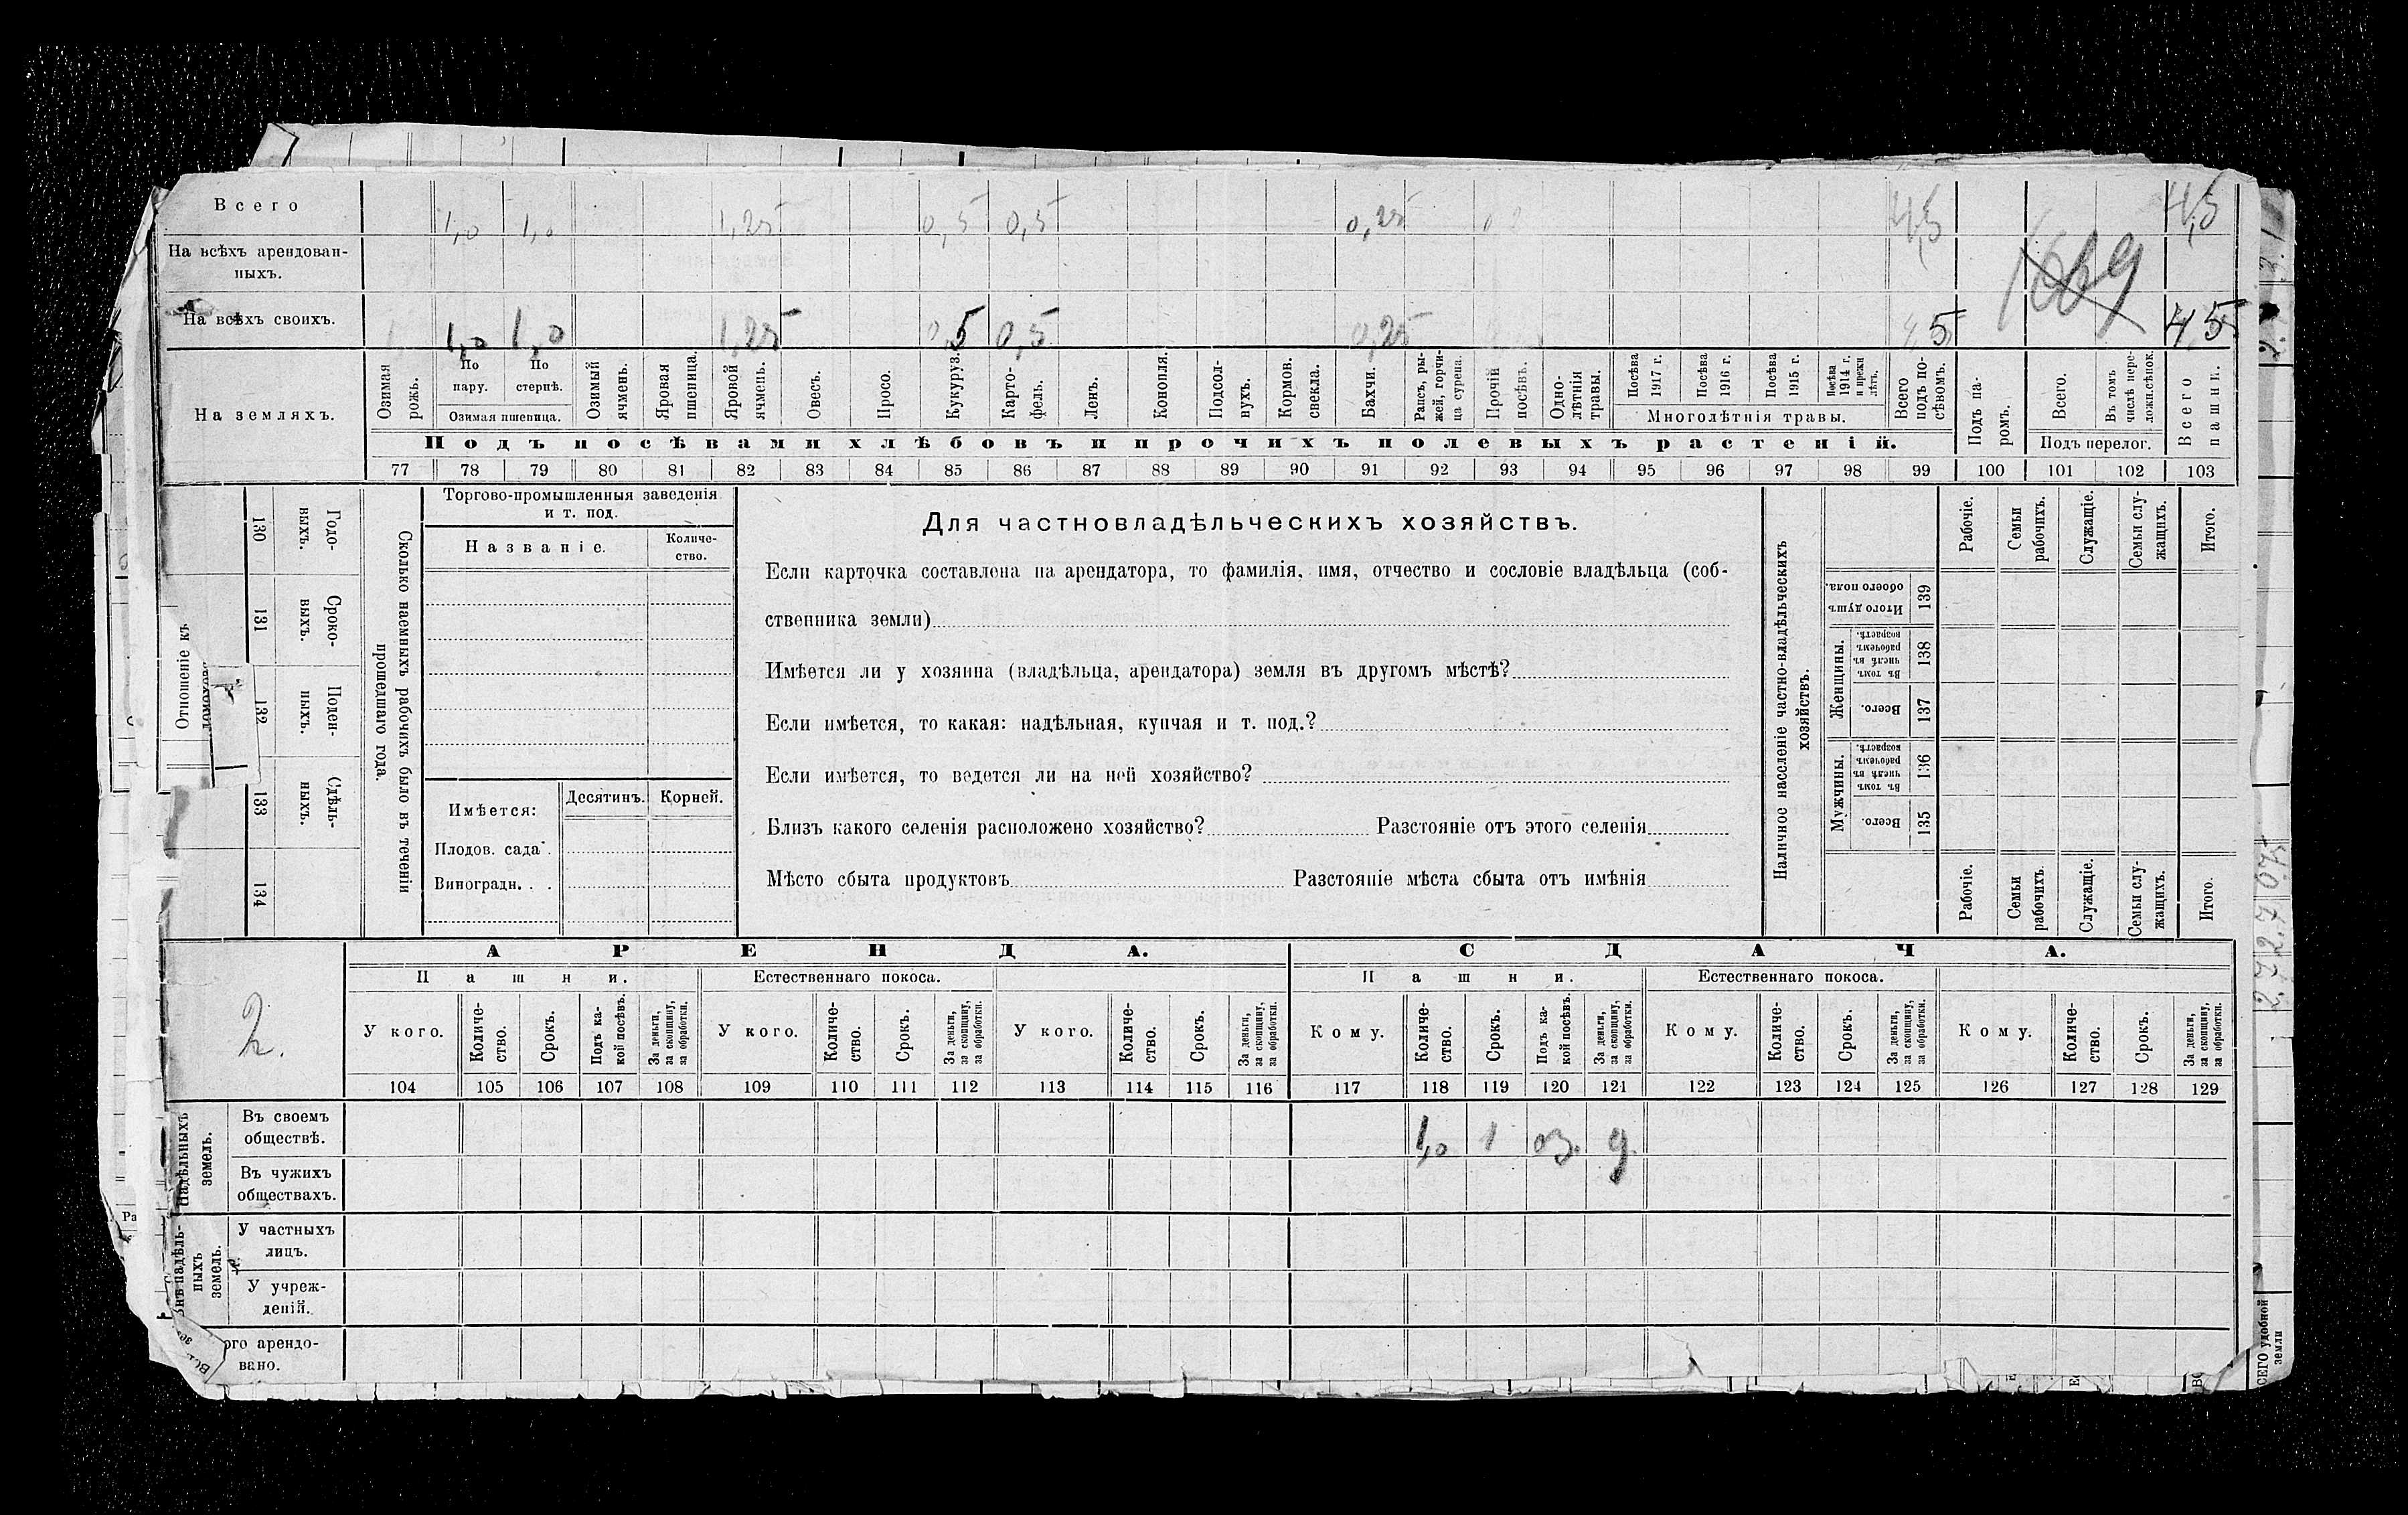 Всего 1,0 1,0 1,25 0,5 0,5 0,25 4,5 4,5
На всѣхъ арендован-
ныхъ.
1669
На всѣхъ своихъ. 1,0 1,0 1,25 0,5 0,5 0,25 4,5 4,5
На земляхъ.
Озимая рожь.
По пару.
По стернѣ.
Озимая пшеница.
Озимый ячмень.
Яровая пшеница.
Яровой ячмень.
Овесъ.
Просо.
Кукуруз.
Карто-
фель.
Ленъ.
Конопля.
Подсол-
нухъ.
Кормов.
свекла.
Бахчи.
Рапсъ, ры-
жей, горчи-
ца сурепа.
Прочій
посѣвъ.
Одно-
лѣтнія
травы.
Посѣва 1917 г.
Посѣва 1916 г.
Посѣва 1915 г.
Посѣва 1914 г. и прежн. лѣтъ.
Многолѣтнія травы.
Всего
подъ по-
сѣвомъ.
Подъ па-
ромъ.
Всего.
Въ томъ
числѣ пере-
ложн.сѣнок.
Подъ перелог.
Всего
пашни.
Подъ посѣвами хлѣбовъ и прочихъ полевыхъ растеній.
77 78 79 80 81 82 83 84 85 86 87 88 89 90 91 92 93 94 95 96 97 98 99 100 101 102 103
Отношеніе къ
130 131 132 133 134
Годо-
выхъ.
Сроко-
выхъ.
Поден-
ныхъ.
Сдѣль-
ныхъ.
Сколько наемныхъ рабочихъ было въ теченіи
прошедшаго года.
Торгово-промышленныя заведенія
и т. под.
Названіе.
Количе-
ство.
Имѣется:
Десятинъ. Корней.
Плодов. сада.
Виноградн. . .
Для частновладѣльческихъ хозяйствъ.
Если карточка составлена на арендатора, то фамилія, имя, отчество и сословіе владѣльца (соб-
ственника земли)
Имѣется ли у хозяина (владѣльца, арендатора) земля въ другомъ мѣстѣ?
Если имѣется, то какая: надѣльная, купчая и т. под.?
Если имѣется, то ведется ли на ней хозяйство?
Близъ какого селенія расположено хозяйство? Разстояніе отъ этого селенія
Мѣсто сбыта продуктовъ Разстояніе мѣста сбыта отъ имѣнія
Наличное населеніе частно-владѣльческихъ
хозяйствъ.
Рабочіе.
Семьи
рабочихъ.
Служащіе.
Семьи слу-
жащихъ.
Итого.
Итого душъ
обоего пола.
139
Женщины.
Въ томъ
числѣ въ
рабочемъ
возрастѣ.
138
Всего.
137
Мужчины.
Въ томъ
числѣ въ
рабочемъ
возрастѣ.
136
Всего.
135
Рабочіе.
Семьи
рабочихъ.
Служащіе.
Семьи слу-
жащихъ.
Итого.
2.
АРЕНДА. СДАЧА.
Пашни. Естественнаго покоса. Пашни. Естественнаго покоса.
У кого.
Количе-
ство.
Срокъ.
Подъ ка-
кой посѣвъ.
За деньги,
за скопщину,
за обработки.
У кого.
Количе-
ство.
Срокъ.
За деньги,
за скопщину,
за обработки.
У кого.
Количе-
ство.
Срокъ.
За деньги,
за скопщину,
за обработки.
Кому.
Количе-
ство.
Срокъ.
Подъ ка-
кой посѣвъ.
За деньги,
за скопщину,
за обработки.
Кому.
Количе-
ство.
Срокъ.
За деньги,
за скопщину,
за обработки.
Кому.
Количе-
ство.
Срокъ.
За деньги,
за скопщину,
за обработки.
104 105 106 107 108 109 110 111 112 113 114 115 116 117 118 119 120 121 122 123 124 125 126 127 128 129
Надѣльныхъ
земель.
Въ своемъ
обществѣ.
1,0 1 оз. д.
Въ чужихъ
обществахъ.
Внѣнадѣль-
ныхъ
земель.
У частныхъ
лицъ.
У учреж-
деній.
ого арендо-
вано.
СЕГО удобной
земли
Ра